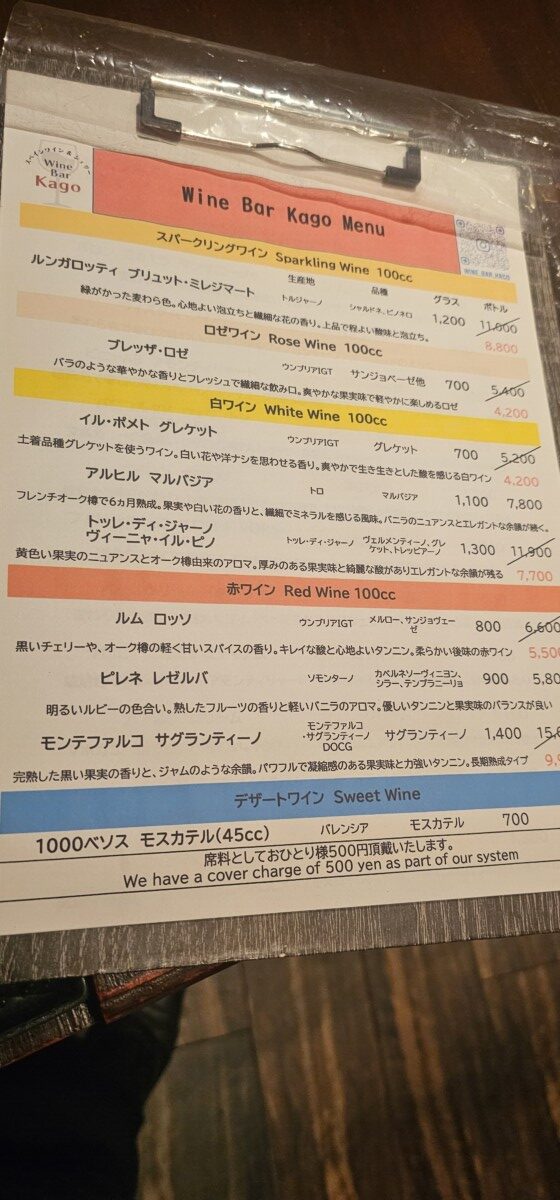 Wine
Bar
Kago
Wine Bar Kago Menu
WINE BAR KAGO
スパークリングワイン Sparkling Wine 100cc
生産地 品種 グラス ボトル
ルンガロッティ ブリュット・ミレジマート トルジャーノ シャルドネ、ピノネロ 1,200 11,000
緑がかった麦わら色。心地よい泡立ちと繊細な花の香り。上品で程よい酸味と泡立ち。 8,800
ロゼワイン Rose Wine 100cc
ブレッザ・ロゼ ウンブリアIGT サンジョベーゼ他 700 5,400
バラのような華やかな香りとフレッシュで繊細な飲み口。爽やかな果実味で軽やかに楽しめるロゼ 4,200
白ワイン White Wine 100cc
イル・ポメト グレケット ウンブリアIGT グレケット 700 5,200
土着品種グレケットを使うワイン。白い花や洋ナシを思わせる香り。爽やかで生き生きとした酸を感じる白ワイン 4,200
アルヒル マルバジア トロ マルバジア 1,100 7,800
フレンチオーク樽で6ヵ月熟成。果実や白い花の香りと、繊細でミネラルを感じる風味。バニラのニュアンスとエレガントな余韻が続く。
トッレ・ディ・ジャーノ
ヴィーニャ・イル・ピノ トッレ・ディ・ジャーノ ヴェルメンティーノ、グレケット、トレッビアーノ 1,300 11,900
黄色い果実のニュアンスとオーク樽由来のアロマ。厚みのある果実味と綺麗な酸がありエレガントな余韻が残る 7,700
赤ワイン Red Wine 100cc
ルム ロッソ ウンブリアIGT メルロー、サンジョヴェーゼ 800 6,600
黒いチェリーや、オーク樽の軽く甘いスパイスの香り。キレイな酸と心地よいタンニン。柔らかい後味の赤ワイン 5,50
ピレネ レゼルバ ソモンターノ カベルネソーヴィニヨン、シラー、テンプラニーリョ 900 5,80
明るいルビーの色合い。熟したフルーツの香りと軽いバニラのアロマ。優しいタンニンと果実味のバランスが良い
モンテファルコ サグランティーノ モンテファルコ・サグランティーノ DOCG サグランティーノ 1,400 15,
完熟した黒い果実の香りと、ジャムのような余韻。パワフルで凝縮感のある果実味と力強いタンニン。長期熟成タイプ 9,
デザートワイン Sweet Wine
1000ベソス モスカテル(45cc) バレンシア モスカテル 700
席料としておひとり様500円頂戴いたします。
We have a cover charge of 500 yen as part of our system